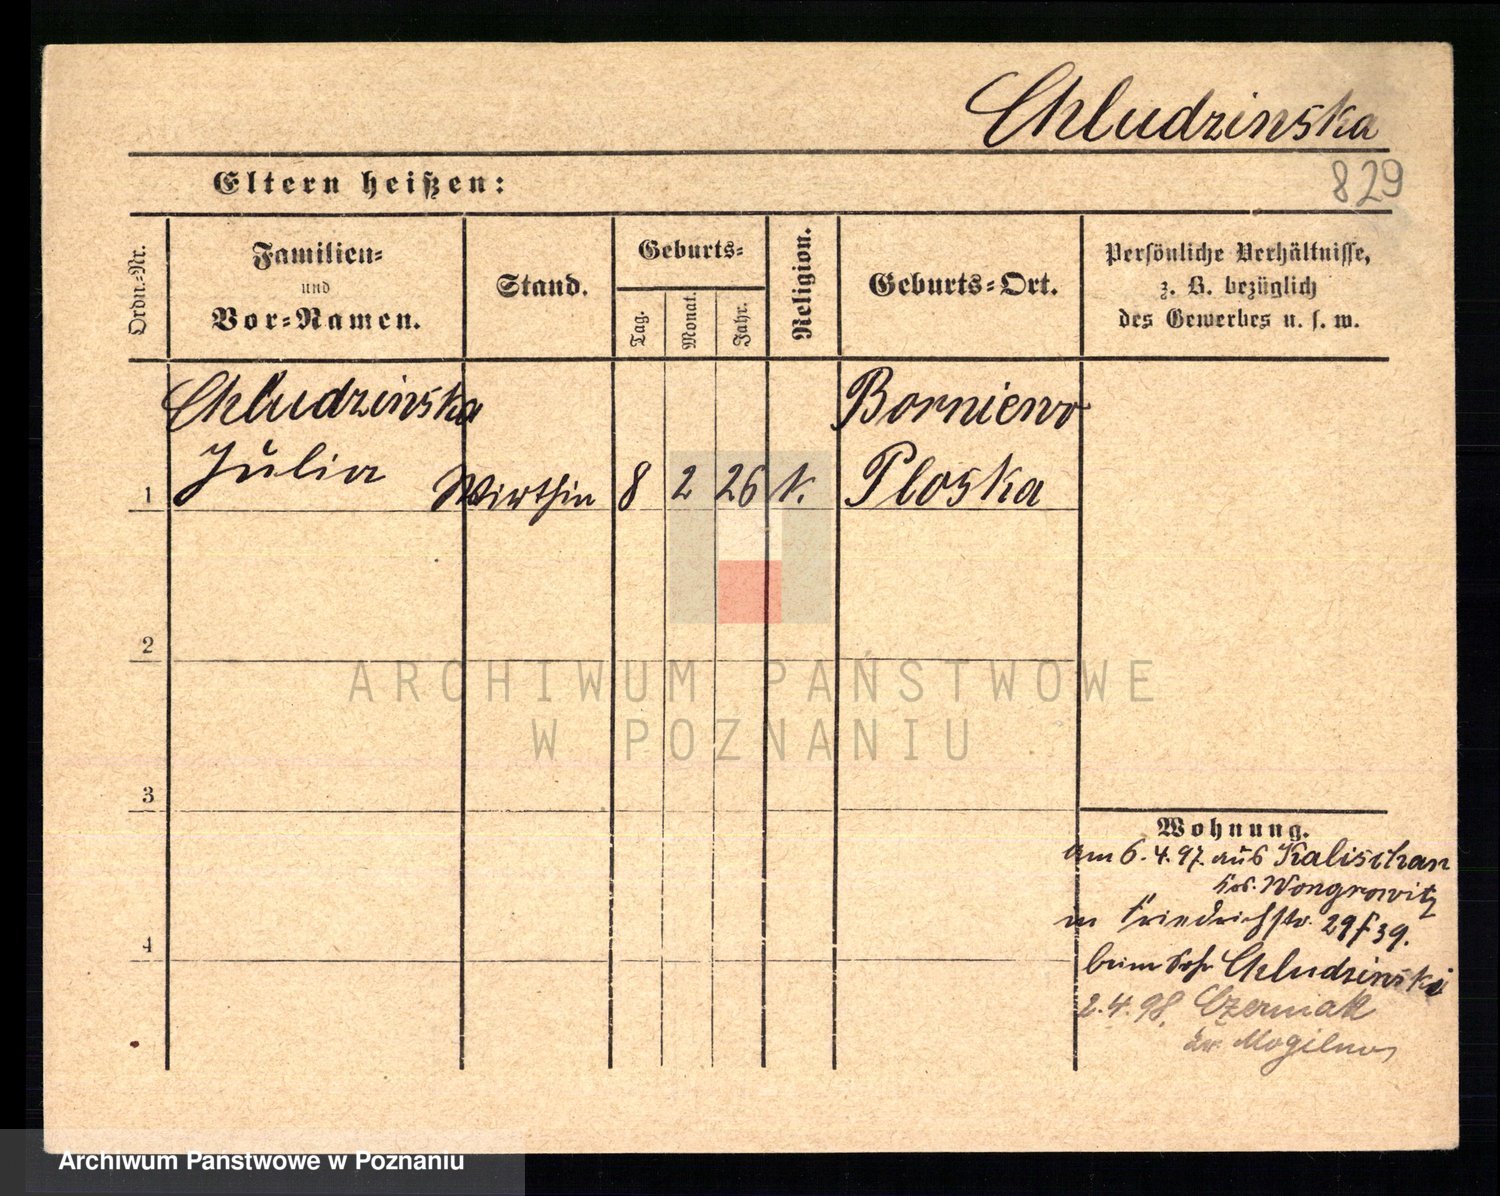 Chludzinska
829
Eltern heißen:
Ordn.-Nr.
Familien-
und
Vor-Namen.
Stand.
Geburts-
Tag.
Monat.
Jahr.
Religion.
Geburts-Ort.
Persönliche Verhältnisse,
z. B. bezüglich
des Gewerbes u. s. w.
Chludzinska Borniewo
Julia
1 Wirthin 8 2 26 k. Ploska
2
3
4
ARCHIWUM PAŃSTWOWE
W POZNANIU
Wohnung.
am 6.4.97. aus Kalischan
Wongrowitz
in Friedrichstr. 29/39.
beim Chludzinski
2.4.98. Czerniak
Kr. Mogilno
Archiwum Państwowe w Poznaniu